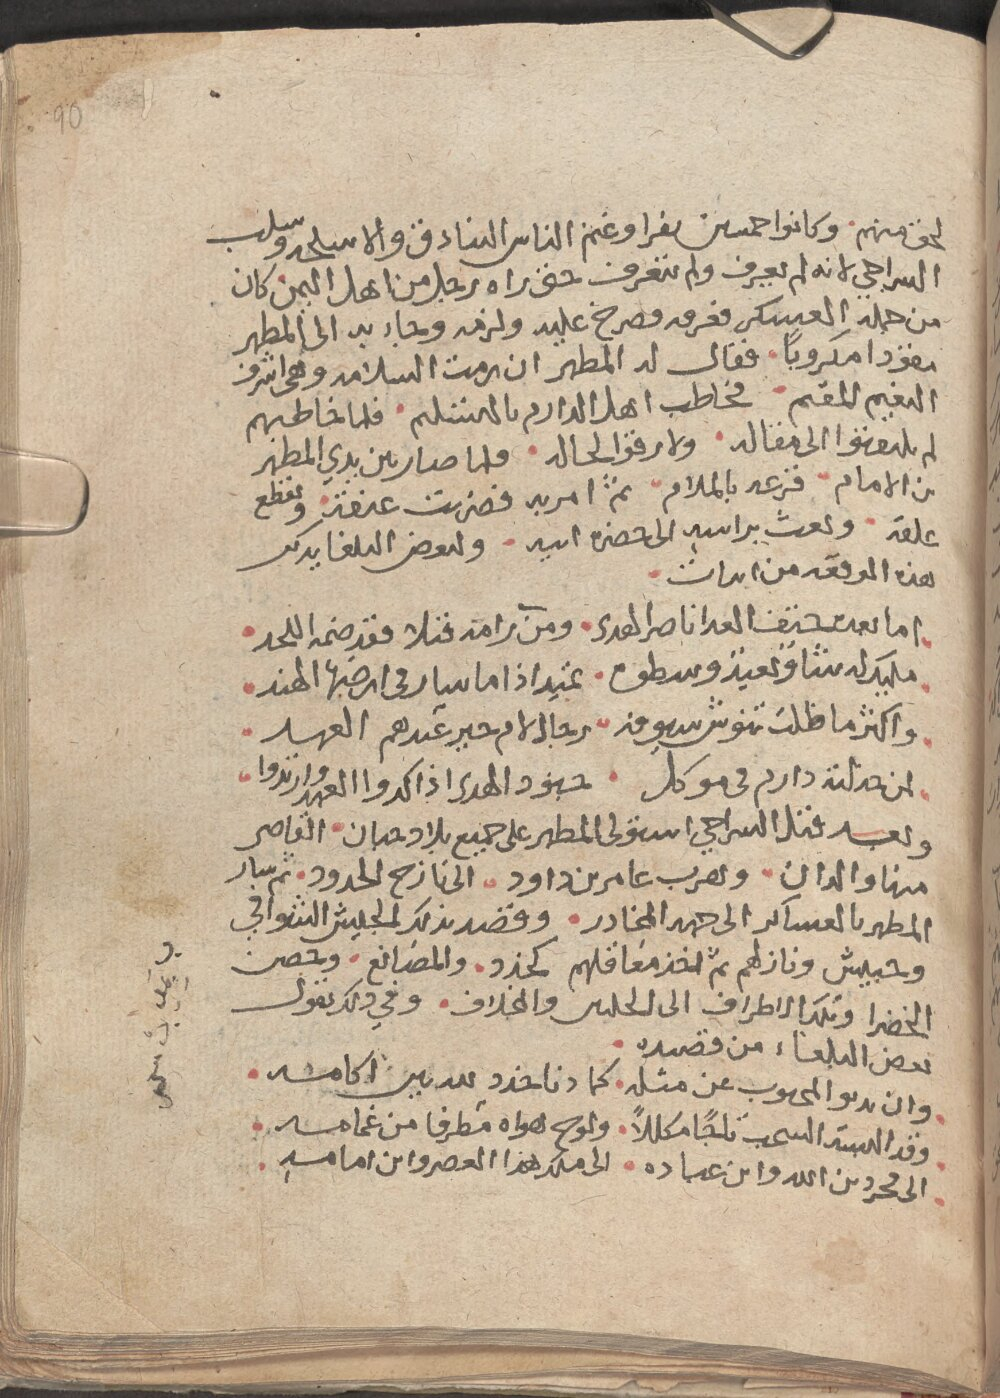 90
لحق منهم وكانوا خمسين نفرا وغنم الناس البنادق والاسلحه وسلب
السراجي لانه لم يعرف ولم يتعرف حتى راه رجل من اهل اليمن كان
من جملة العسكر فعرفه فصرخ عليه ولزمه وجاء به الى المطهر
مكروبًا فقال له المطهر ان رمت السلامه وهي اشرف
النعيم المقيم فخاطب اهل الدارم بالتسليم فلما خاطبهم
لم يلتفتوا الى مقاله ولا رقوا لحاله فلما صار بين يدي المطهر
بن الامام قرعه بالملام ثم امر به فضربت عنقه وتقطع
علقه وبعث براسه الى حضرة ابيه ولبعض البلغا يذكر
هذه الموقعه من ابيات
اما بعد حتف العدا ناصر الهدى ومن رامه قتلا فقد ضمه اللحد
مليك له وسطوه تميد اذا ما سار في ارضها الهند
واكثر ما ظلت تنوش سيوفه رجال لام حبر عندهم العهد
دارم في موكل جنود الهدى اذ اكدوا العهد وارتدوا
وبعد قتل السراجي استولى المطهر على جميع بلاد حبان القاصي
منها والدان وهرب عامر بن داود الى نازح الحدود ثم سار
المطهر بالعساكر الى جهه المخادر وقصد بذلك الجيش الشوافي
وحبيش ونازلهم ثم اخذ معاقلهم كخدد والمصانع وحصن
الخضرا وتلك الاطراف الى والمخلاف وفي ذلك يقول
بعض البلغاء من قصيده
وان يدنو المحبوب عن مثله كما دنا خدد لله بين اكامه
وقد البسته السحب ثلجًا مكللاً ولوح هواه مطرفا من غمامه
الى فخر دين الله وابن عماده الى ملك هذا العصر وابن امامه